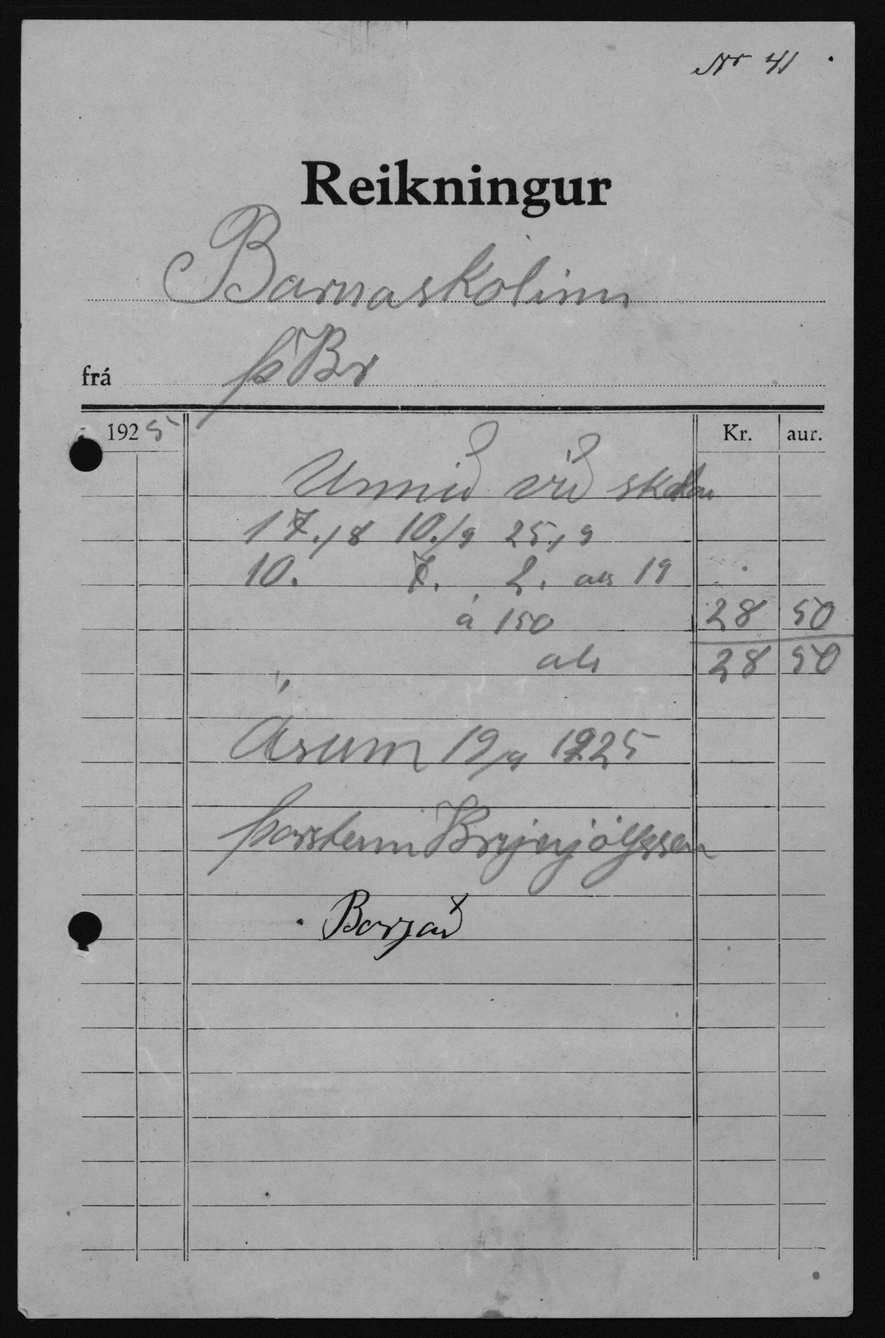 Nr 41
Reikningur
Barnaskólinn
frá Þ Br
1925 Kr. aur.
Unnið við skólan
17./8 10./9 25./9
10. 7. 2. als 19
á 150 28 50
als 28 50
Ásum 19/9 1925
Þorsteinn Brynjólfsson
Borgað